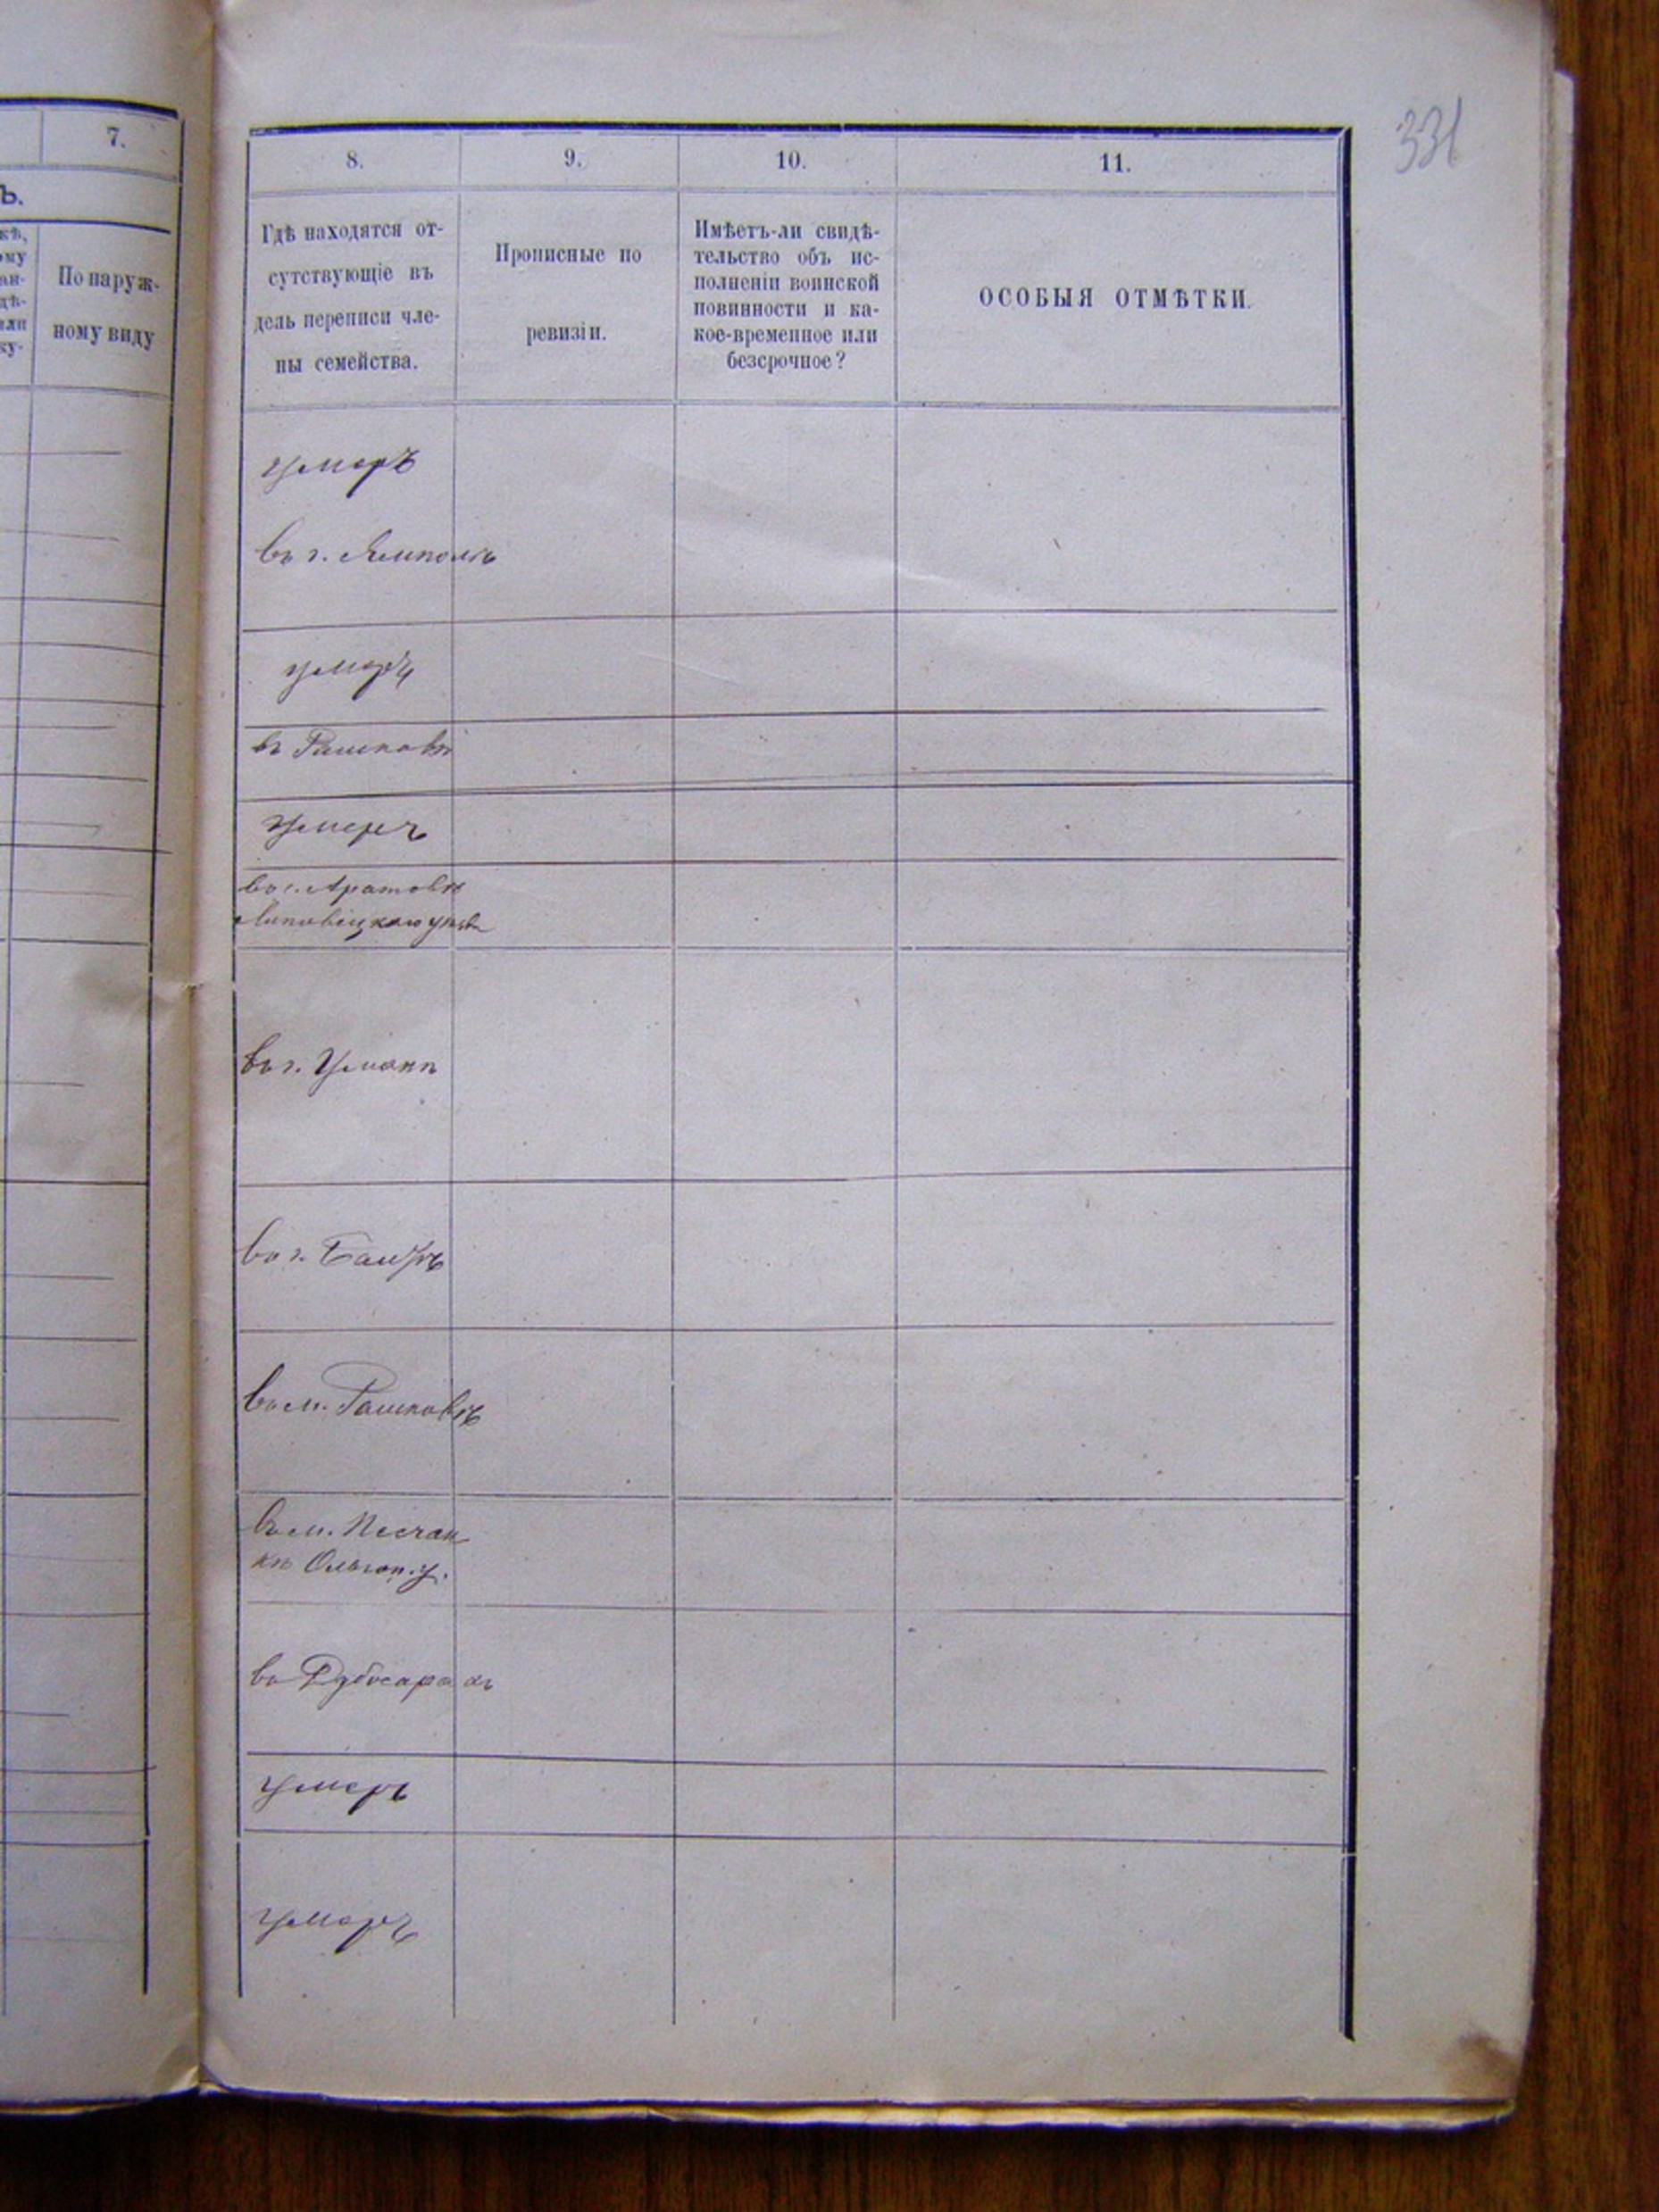 331
7.
Ъ.
По наруж-
ному виду
8.
9.
10.
11.
Гдѣ находятся от-
сутствующіе въ
день переписи чле-
ны семейства.
Прописные по
ревизіи.
Имѣетъ-ли свидѣ-
тельство объ ис-
полненіи воинской
повинности и ка-
кое-временное или
безсрочное?
ОСОБЫЯ ОТМѢТКИ.
умеръ
въ г. Ямполѣ
умеръ
въ Рашковѣ
умеръ
въ с. Аратовкѣ
Липовецкаго уѣзда
въ г. Умани
въ г. Балтѣ
въ м. Рашковѣ
въ м. Песчан
кѣ Ольгоп. у.
въ Дубосарахъ
умеръ
умеръ